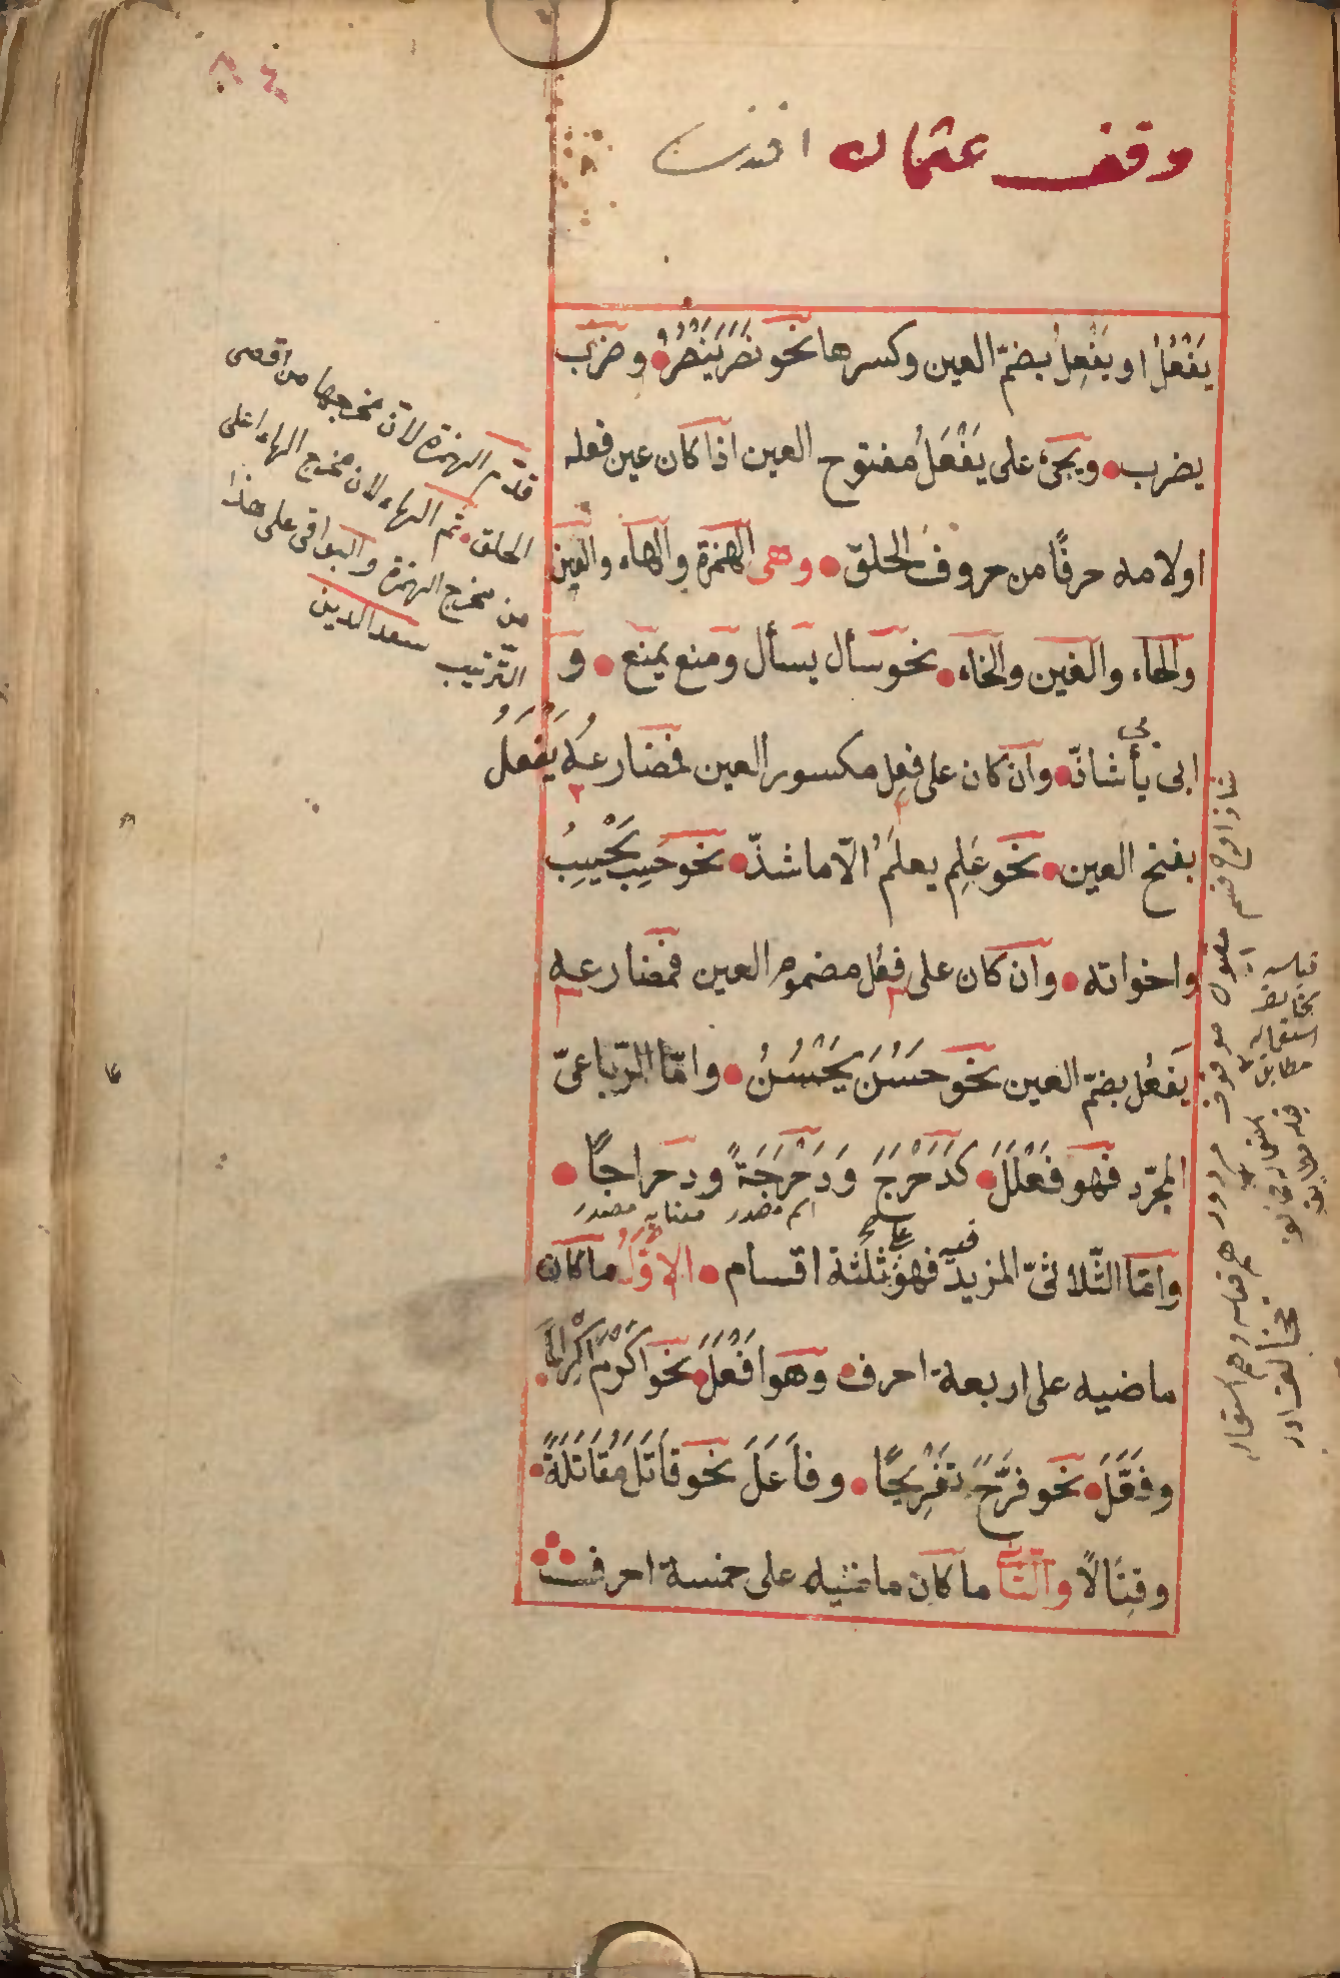 ٨٤
وقف عثمان افندى
يَفْعُلُ او يَفْعِلُ بضمّ العين وكسرها نحو نَصَرَ يَنْصُرُ وضرب
يضرب ويجئ على يَفْعَلُ مفتوح العين اذا كان عين فعله
اولامه حرفًا من حروف الحلق وهى الهمزة والهاء والعين
والحاء والغين والخاء نحو سأل يسأل ومنع يمنع و
ابى يأبى شاذّ وان كان على فعِل مكسور العين فمضارعه يَفْعَلُ
بفتح العين نحو عَلِم يعلَمُ الّا ما شذّ نحو حَسِبَ يَحْسِبُ
واخواته وان كان على فعُل مضموم العين فمضارعه
يَفعُل بضمّ العين نحو حَسُنَ يَحْسُنُ وامّا الرّباعىّ
المجرّد فهو فَعْلَلَ كَدَحْرَجَ وَدَحْرَجَةً ودحراجًا
اسم مصدر معناسه مصدر
وامّا الثّلاثىّ المزيد فيه فهو على ثلثة اقسام الاوّلُ ما كان
ماضيه على اربعة احرف وهو اَفْعَلَ نحو اَكْرَمَ اِكْرَامًا
وفَعَّلَ نحو فرَّحَ تَفْرِيحًا وفاعَلَ نحو قَاتَلَ مُقَاتَلَةً
وقِتَالًا والثّانى ما كان ماضيه على خمسة احرف
قدّم الهمزة لانّ مخرجها من اقصى
الحلق ثم الهاء لان مخرج الهاء اعلى
من مخرج الهمزة والبواقى على هذا
التّرتيب سعد الدين